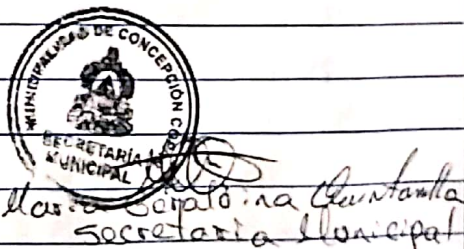 MUNICIPALIDAD DE CONCEPCIÓN COP
SECRETARÍA
MUNICIPAL
Maria Geraldina Quintanilla
Secretaria Municipal